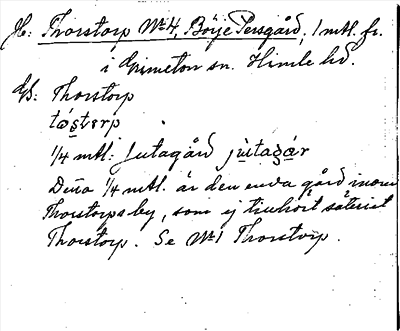 Jb: Thorstorp No 4, Böije Persgård, 1 mtl. fr.
i Grimeton sn. Himle hd.
Gs: Thorstorp
tòstɐrp
1/4 mtl: Jutagård jùtagàr
Dena 1/4 mtl. är den enda gård inom
Thorstorps by, som ej tillhört säteriet
Thorstorp. Se No 1 Thorstorp.